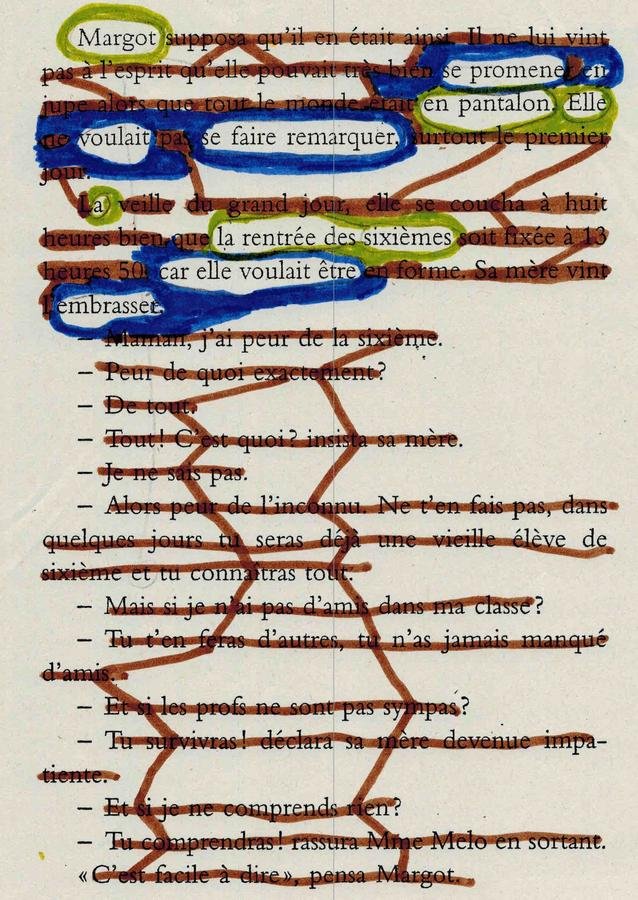 Margot supposa qu'il en était ainsi. Il ne lui vint
pas à l'esprit qu'elle pouvait très bien se promener en
jupe alors que tout le monde était en pantalon. Elle
ne voulait pas se faire remarquer, surtout le premier
jour.
La veille du grand jour, elle se coucha à huit
heures bien que la rentrée des sixièmes soit fixée à 13
heures 50, car elle voulait être en forme. Sa mère vint
l'embrasser.
– Maman, j'ai peur de la sixième.
– Peur de quoi exactement?
– De tout.
– Tout! C'est quoi? insista sa mère.
– Je ne sais pas.
– Alors peur de l'inconnu. Ne t'en fais pas, dans
quelques jours tu seras déjà une vieille élève de
sixième et tu connaîtras tout.
– Mais si je n'ai pas d'amis dans ma classe?
– Tu t'en feras d'autres, tu n'as jamais manqué
d'amis.
– Et si les profs ne sont pas sympas?
– Tu survivras! déclara sa mère devenue impa-
tiente.
– Et si je ne comprends rien?
– Tu comprendras! rassura Mme Melo en sortant.
«C'est facile à dire», pensa Margot.